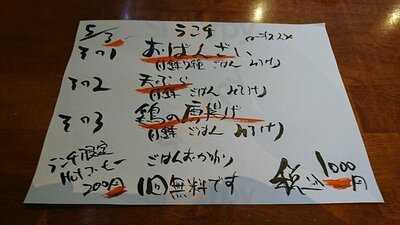 5/3 ランチ
その1 おばんざい
ごはん みそ汁
その2 天ぷら
ごはん みそ汁
その3 鶏の唐揚げ
ごはん みそ汁
ランチ限定
Hotコーヒー
200円
ごはんおかわり
1回無料です
税込1000円